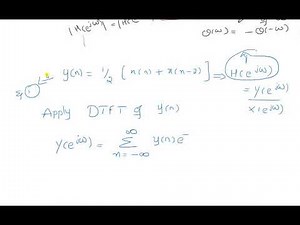 |H(e^jω)| = |H(e
Θ(ω) = -Θ(-ω)
y(n) = 1/2 [x(n) + x(n-2)] ⇒ H(e^jω)
= Y(e^jω)
X(e^jω)
Apply DTFT of y(n)
Y(e^jω) = ∑ y(n) e^-
∞
n = -∞